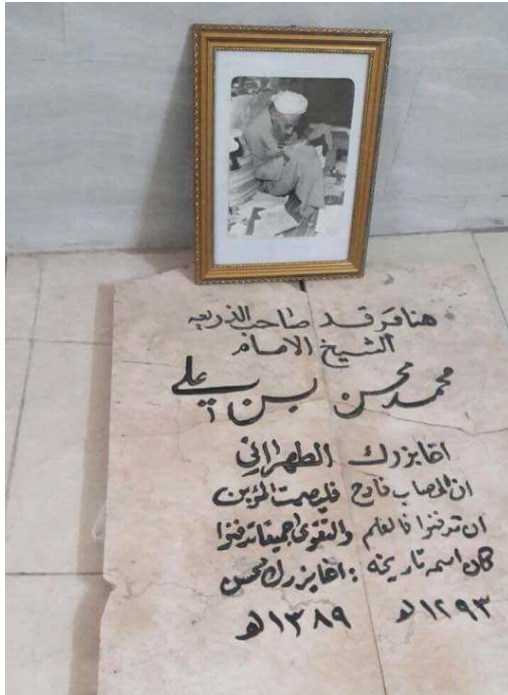 هنا مرقد صاحب الذريعه
الشيخ الامام
محمد محسن بن علي
اقا بزرك الطهراني
ان المصاب فادح فليصمت المؤبن
ان تدفنوا فالعلم والتقوى جميعا تدفنوا
كان اسمه تاريخه : اقا بزرك محسن
١٢٩٣هـ ١٣٨٩هـ